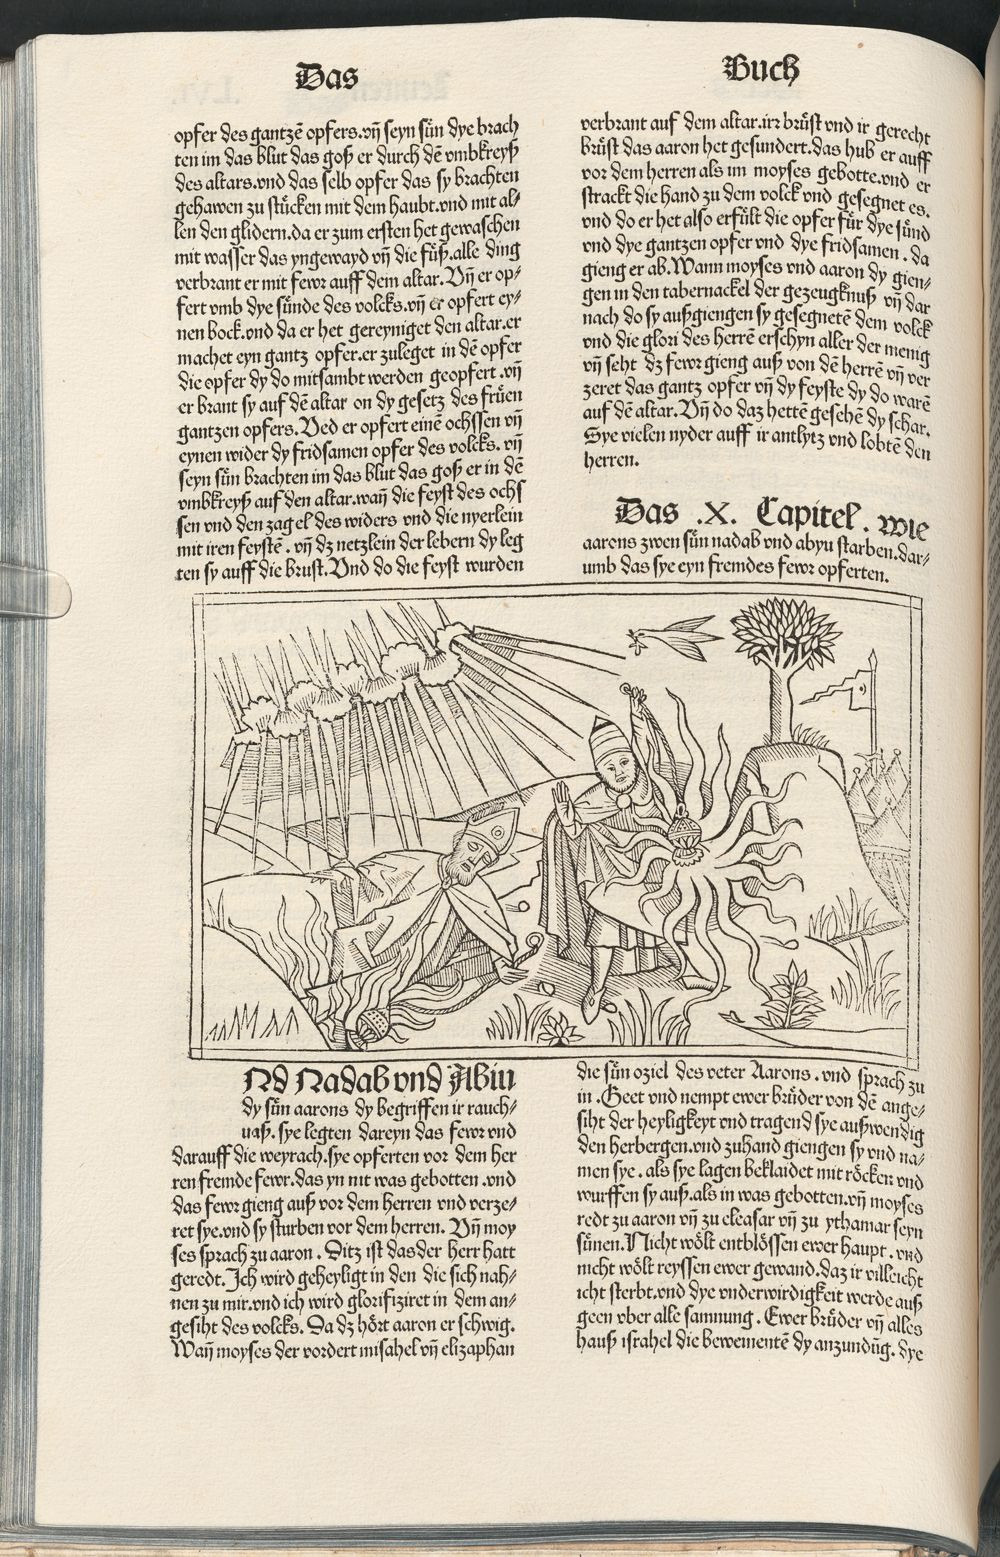 Das
Buch
opfer des gantzē opfers.vn̄ seyn sün̄ dye brach
ten im das blut das goß er durch dē vmbkreyß
des altars.vnd das selb opfer das sy brachten
gehawen zu stücken mit dem haubt.vnd mit al⸗
len den glidern.da er zum ersten het gewaschen
mit wasser das yngewayd vn̄ die füß.alle ding
verbrant er mit fewr auff dem altar. Vn̄ er op⸗
fert vmb dye sünde des volcks.vn̄ er opfert ey⸗
nen bock.vnd da er het gereyniget den altar.er
machet eyn gantz opfer.er zuleget in dē opfer
die opfer dy do mitsambt werden geopfert .vn̄
er brant sy auf dē altar on dy gesetz des früen
gantzen opfers. Ved er opfert einē ochssen vn̄
eynen wider dy fridsamen opfer des volcks. vn̄
seyn sün̄ brachten im das blut das goß er in dē
vmbkreyß auf den altar.wan̄ die feyst des ochs
sen vnd den zagel des widers vnd die nyerlein
mit iren feystē . vn̄ dz netzlein der lebern dy leg
ten sy auff die brust. Vnd do die feyst wurden
verbrant auf dem altar.irr brüst vnd ir gerecht
brüst das aaron het gesundert.das hub er auff
vor dem herren als im moyses gebotte.vnd er
strackt die hand zu dem volck vnd gesegnet es.
vnd do er het also erfült die opfer für dye sünd
vnd dye gantzen opfer vnd dye fridsamen . da
gieng er ab. Wann moyses vnd aaron dy gien⸗
gen in den tabernackel der gezeugknuß vn̄ dar
nach do sy außgiengen sy gesegnetē dem volck
vnd die glori des herrē erschyn aller der menig
vn̄ seht dz fewr gieng auß von dē herrē vn̄ ver
zeret das gantz opfer vn̄ dy feyste dy do warē
auf dē altar. Vn̄ do daz hettē gesehē dy schar.
Sye vielen nyder auff ir antlytz vnd lobtē den
herren.
Das .X. Capitel . Wie
aarons zwen sün̄ nadab vnd abyu starben.dar⸗
umb das sye eyn fremdes fewr opferten.
Nd Nadab vnd Abiu
dy sün̄ aarons dy begriffen ir rauch⸗
uaß. sye legten dareyn das fewr vnd
darauff die weyrach.sye opferten vor dem her
ren fremde fewr.das yn nit was gebotten .vnd
das fewr gieng auß vor dem herren vnd verze⸗
ret sye.vnd sy sturben vor dem herren. Vn̄ moy
ses sprach zu aaron . Ditz ist das der herr hatt
geredt. Ich wird geheyligt in den die sich nah⸗
nen zu mir.vnd ich wird glorifiziret in dem an⸗
gesiht des volcks. Da dz hört aaron er schwig.
Wan̄ moyses der vordert misahel vn̄ elizaphan
die sün̄ oziel des veter Aarons . vnd sprach zu
in . Geet vnd nempt ewer brüder von dē ange⸗
siht der heyligkeyt vnd tragend sye außwendig
den herbergen.vnd zuhand giengen sy vnd na⸗
men sye . als sye lagen beklaidet mit röcken vnd
wurffen sy auß.als in was gebotten.vn̄ moyses
redt zu aaron vn̄ zu eleasar vn̄ zu ythamar seyn
sünen. Nicht wölt entblössen ewer haupt . vnd
nicht wölt reyssen ewer gewand.daz ir villeicht
icht sterbt.vnd dye vnderwirdigkeit werde auß
geen vber alle samnung . Ewer brüder vn̄ alles
hauß israhel die bewementē dy anzundūg. dye